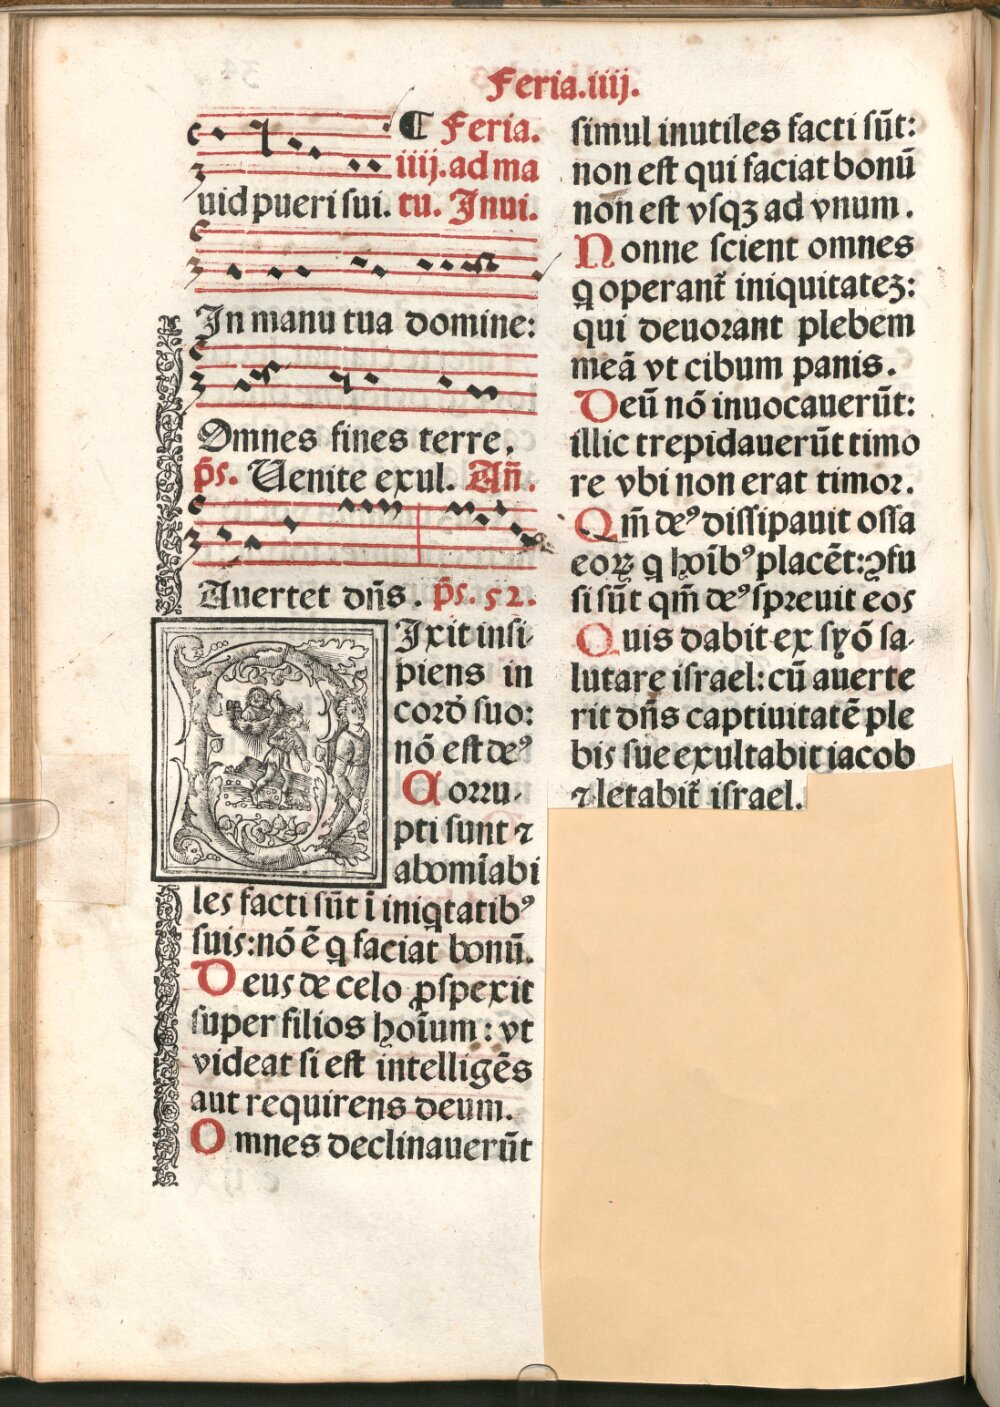 Feria.iiij.
¶ Feria.
iiij.ad ma
uid pueri sui. tu. Inui.
In manu tua domine:
Omnes fines terre.
p̄s. Uenite exul. Añ.
Auertet dñs. p̄s. 52.
Ixit insi-
piens in
cordõ suo:
nõ est deꝰ
Corru-
pti sunt ⁊
abomĩabi
les facti sũt ĩ iniqtatibꝰ
suis: nõ ẽ q faciat bonũ.
Deus de celo ꝓspexit
super filios hoĩum: vt
videat si est intelligẽs
aut requirens deum.
Omnes declinauerũt
simul inutiles facti sũt:
non est qui faciat bonũ
non est vsqꝫ ad vnum.
Nonne scient omnes
q operant᷑ iniquitateꝫ:
qui deuorant plebem
meã vt cibum panis.
Deũ nõ inuocauerũt:
illic trepidauerũt timo
re vbi non erat timor.
Qm̃ deꝰ dissipauit ossa
eoꝝ q hoĩbꝰ placẽt: ꝯfu
si sũt qm̃ deꝰ spreuit eos
Quis dabit ex syõ sa-
lutare israel: cũ auerte
rit dñs captiuitatẽ ple
bis sue exultabit iacob
⁊ letabit᷑ israel.